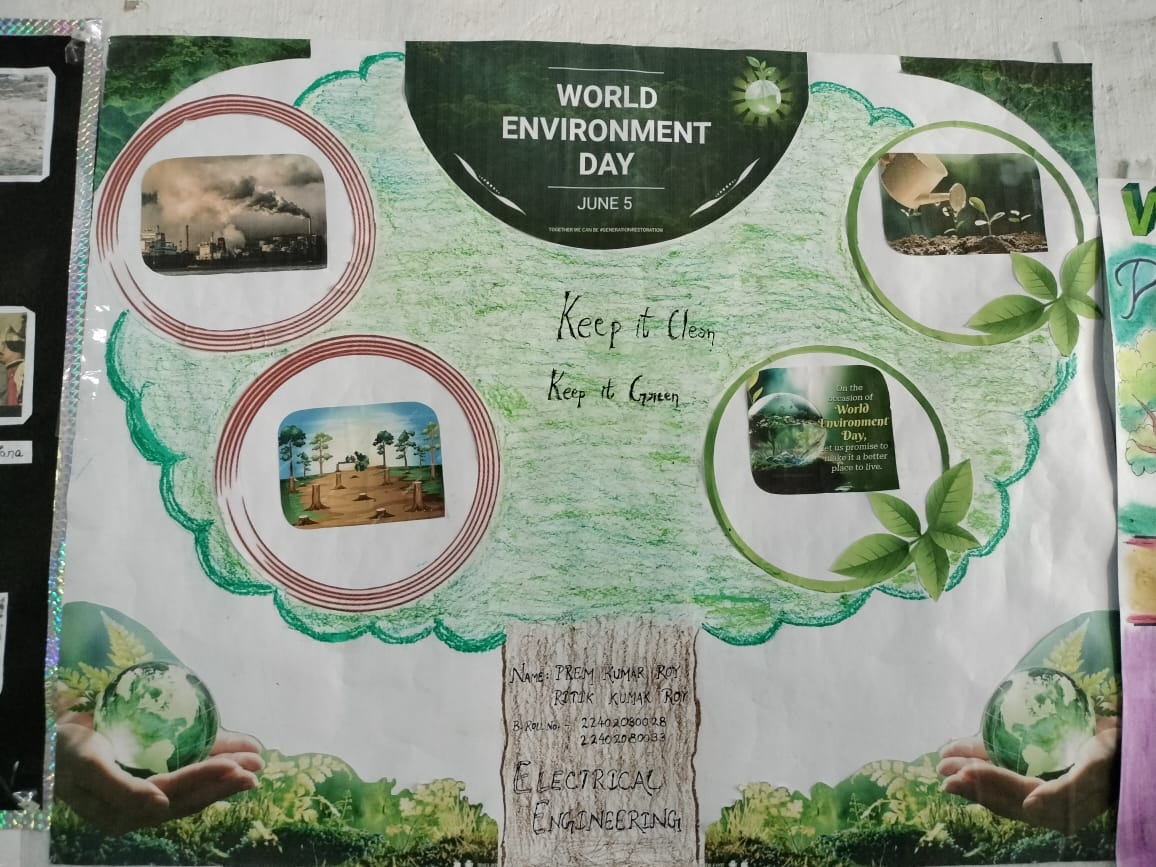 WORLD
ENVIRONMENT
DAY
JUNE 5
TOGETHER WE CAN BE #GENERATIONRESTORATION
Keep it Clean
Keep it Green
On the
occasion of
World
Environment
Day,
let us promise to
make it a better
place to live.
NAME: PREM KUMAR ROY
RITIK KUMAR ROY
B. ROLL No. - 22402080028
22402080033
ELECTRICAL
ENGINEERING